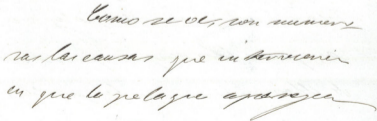 Como se ve, son numero-
sas las causas que intervienen
en que la pelagra aparezca